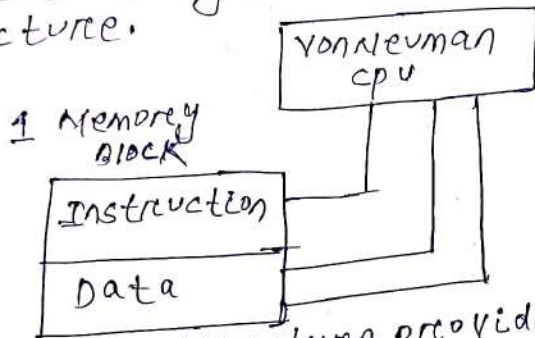 cture.
VonNeuman
CPU
1 Memorey
Block
Instruction
Data
provid